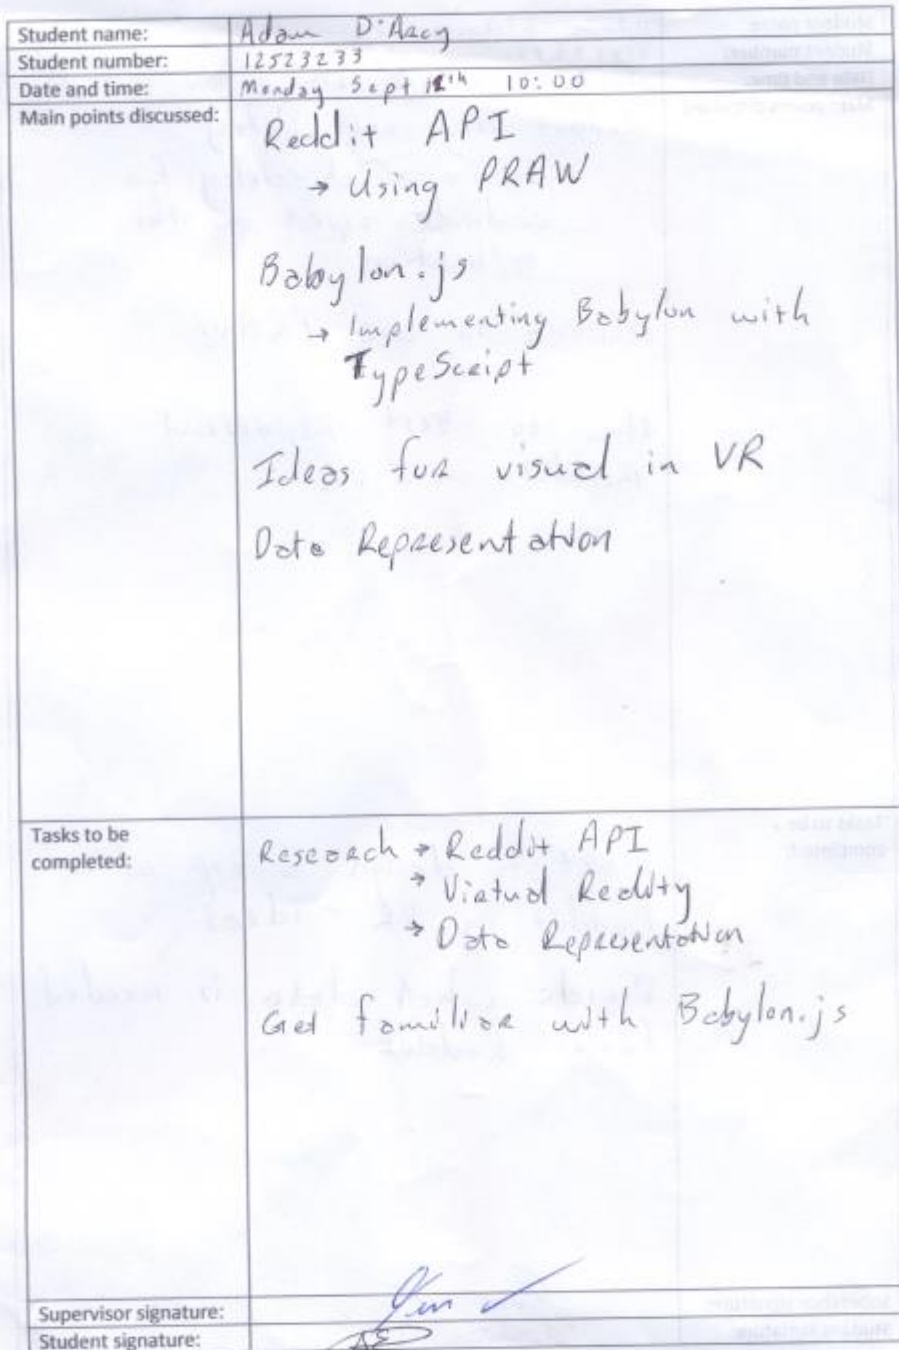 Student name: Adam D'Arcy
Student number: 12523233
Date and time: Monday Sept 10:00
Main points discussed:
Reddit API
→ Using PRAW
Babylon.js
→ Implementing Babylon with
TypeScript
Ideas for visual in VR
Data Representation
Tasks to be
completed:
Research → Reddit API
→ Virtual Reality
→ Data Representation
Get familiar with Babylon.js
Supervisor signature:
Student signature: